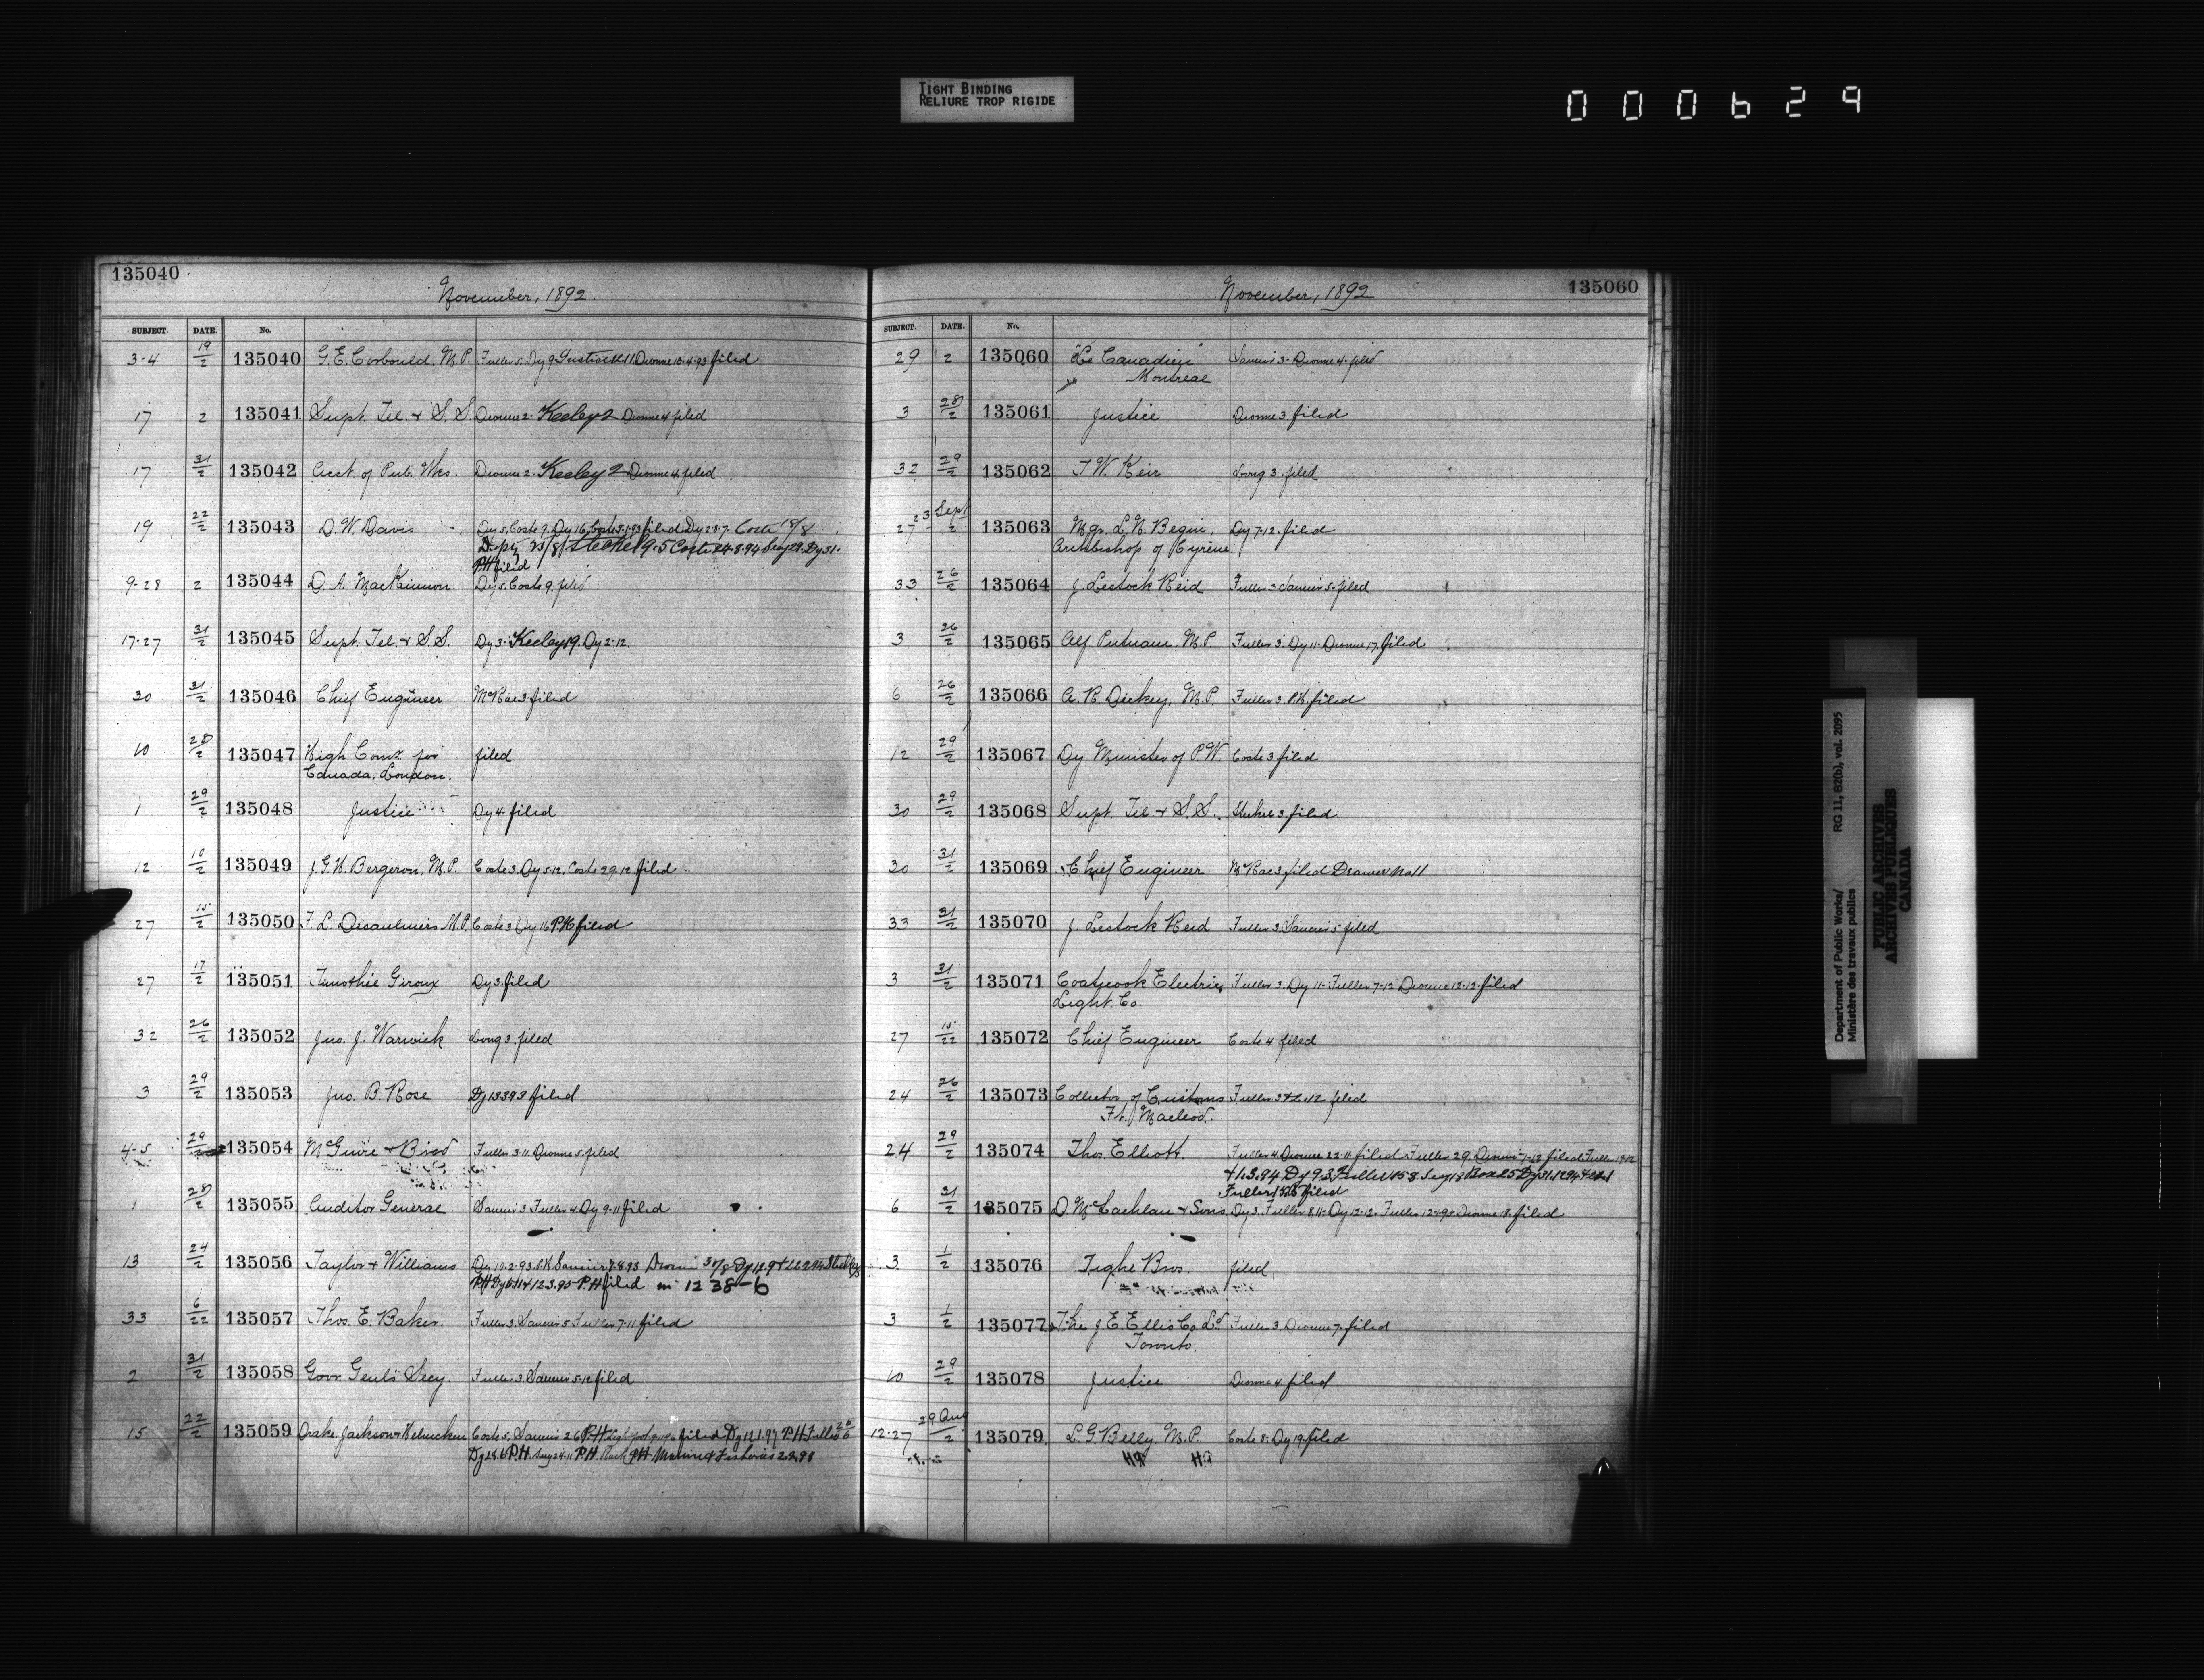 TIGHT BINDING
RELIURE TROP RIGIDE
000629
135040
November, 1892.
SUBJECT. DATE. No.
3-4 19/2 135040 G. E. Corbould, M.P. Fuller 5. Dy 9 Dionne 18-4-93 filed
17 2 135041 Supt. Tel. & S. S. Dionne 2. Keeley 2 Dionne 4 filed
17 31/2 135042 Acct. of Pub. Wks. Dionne 2. Keeley 2 Dionne 4 filed
19 22/2 135043 D. W. Davis Dy 5. Coste 9. Dy 16. filed Dy 28-7. Coste 18/8
Coste 24.8.94 Dy 31.
P.H filed
9-28 2 135044 D. A. MacKinnon. Dy 5. Coste 9. filed
17-27 31/2 135045 Supt. Tel. & S. S. Dy 3. Keeley 19. Dy 2-12.
30 31/2 135046 Chief Engineer McRae 3 filed
10 28/2 135047 High Comr. for filed
Canada, London.
1 29/2 135048 Justice Dy 4. filed
12 10/2 135049 J. G. H. Bergeron, M.P. Coste 3. Dy 5-12. Coste 29.12. filed
27 15/2 135050 F. L. Desaulniers M.P. Coste 3 Dy 16 P.H filed
27 17/2 135051 Timothée Giroux Dy 3. filed
32 26/2 135052 Jno. J. Warwick Long 3. filed
3 29/2 135053 Jno. B. Rose filed
4-5 29/2 135054 McGuire & Bird Fuller 3-11. Dionne 5. filed
1 28/2 135055 Auditor General Fuller 4. Dy 9-11 filed
13 24/2 135056 Taylor & Williams Dy 10.2.93.
P.H filed in 1238-6
33 6/22 135057 Thos. E. Baker. Fuller 3. Fuller 7-11 filed
2 31/2 135058 Govr. Genl's Secy. Fuller 3. filed
15 22/2 135059 Drake, Jackson & Helmcken Coste 5. filed Dy 12.1.97 P.H Fuller
P.H Marine & Fisheries
November, 1892
135060
SUBJECT. DATE. No.
29 2 135060 "Le Canadien" Dionne 4. filed
Montreal
3 28/2 135061 Justice Dionne 3. filed
32 29/2 135062 T. W. Keir Long 3. filed
27 23 Sept/2 135063 Mgr. L. N. Begin, Dy 7-12. filed
Archbishop of Cyrene
33 26/2 135064 J. Lestock Reid Fuller 3 filed
3 26/2 135065 Alf Putnam, M.P. Fuller 3. Dy 11. Dionne 17. filed
6 26/2 135066 A. R. Dickey, M.P. Fuller 3. P.H. filed
12 29/2 135067 Dy Minister of P.W. Coste 3 filed
30 29/2 135068 Supt. Tel. & S. S. Steckel 3 filed
30 31/2 135069 Chief Engineer McRae 3 filed Drawer No 11
33 31/2 135070 J. Lestock Reid Fuller 3. filed
3 31/2 135071 Coaticook Electric Fuller 3. Dy 11. Fuller 7-12 Dionne 12-12. filed
Light Co.
27 15/22 135072 Chief Engineer Coste 4 filed
24 26/2 135073 Collector of Customs Fuller filed
Ft. Macleod.
24 29/2 135074 Thos Elliott. Fuller 4. Dionne 22-11. filed Fuller 29
filed
6 31/2 135075 D. McLachlan & Sons. Dy 3. Fuller 8.11. Dy 12-12. Dionne 18. filed
3 1/2 135076 Tighe Bros. filed
3 1/2 135077 The J. E. Ellis Co. Ld. Fuller 3. Dionne 7. filed
Toronto.
10 29/2 135078 Justice Dionne 4. filed
12-27 29 Aug/2 135079 L. G. Belly M.P. Coste 8. Dy 19. filed
Department of Public Works/ RG 11, B2(b), vol. 2095
Ministère des travaux publics
PUBLIC ARCHIVES
ARCHIVES PUBLIQUES
CANADA